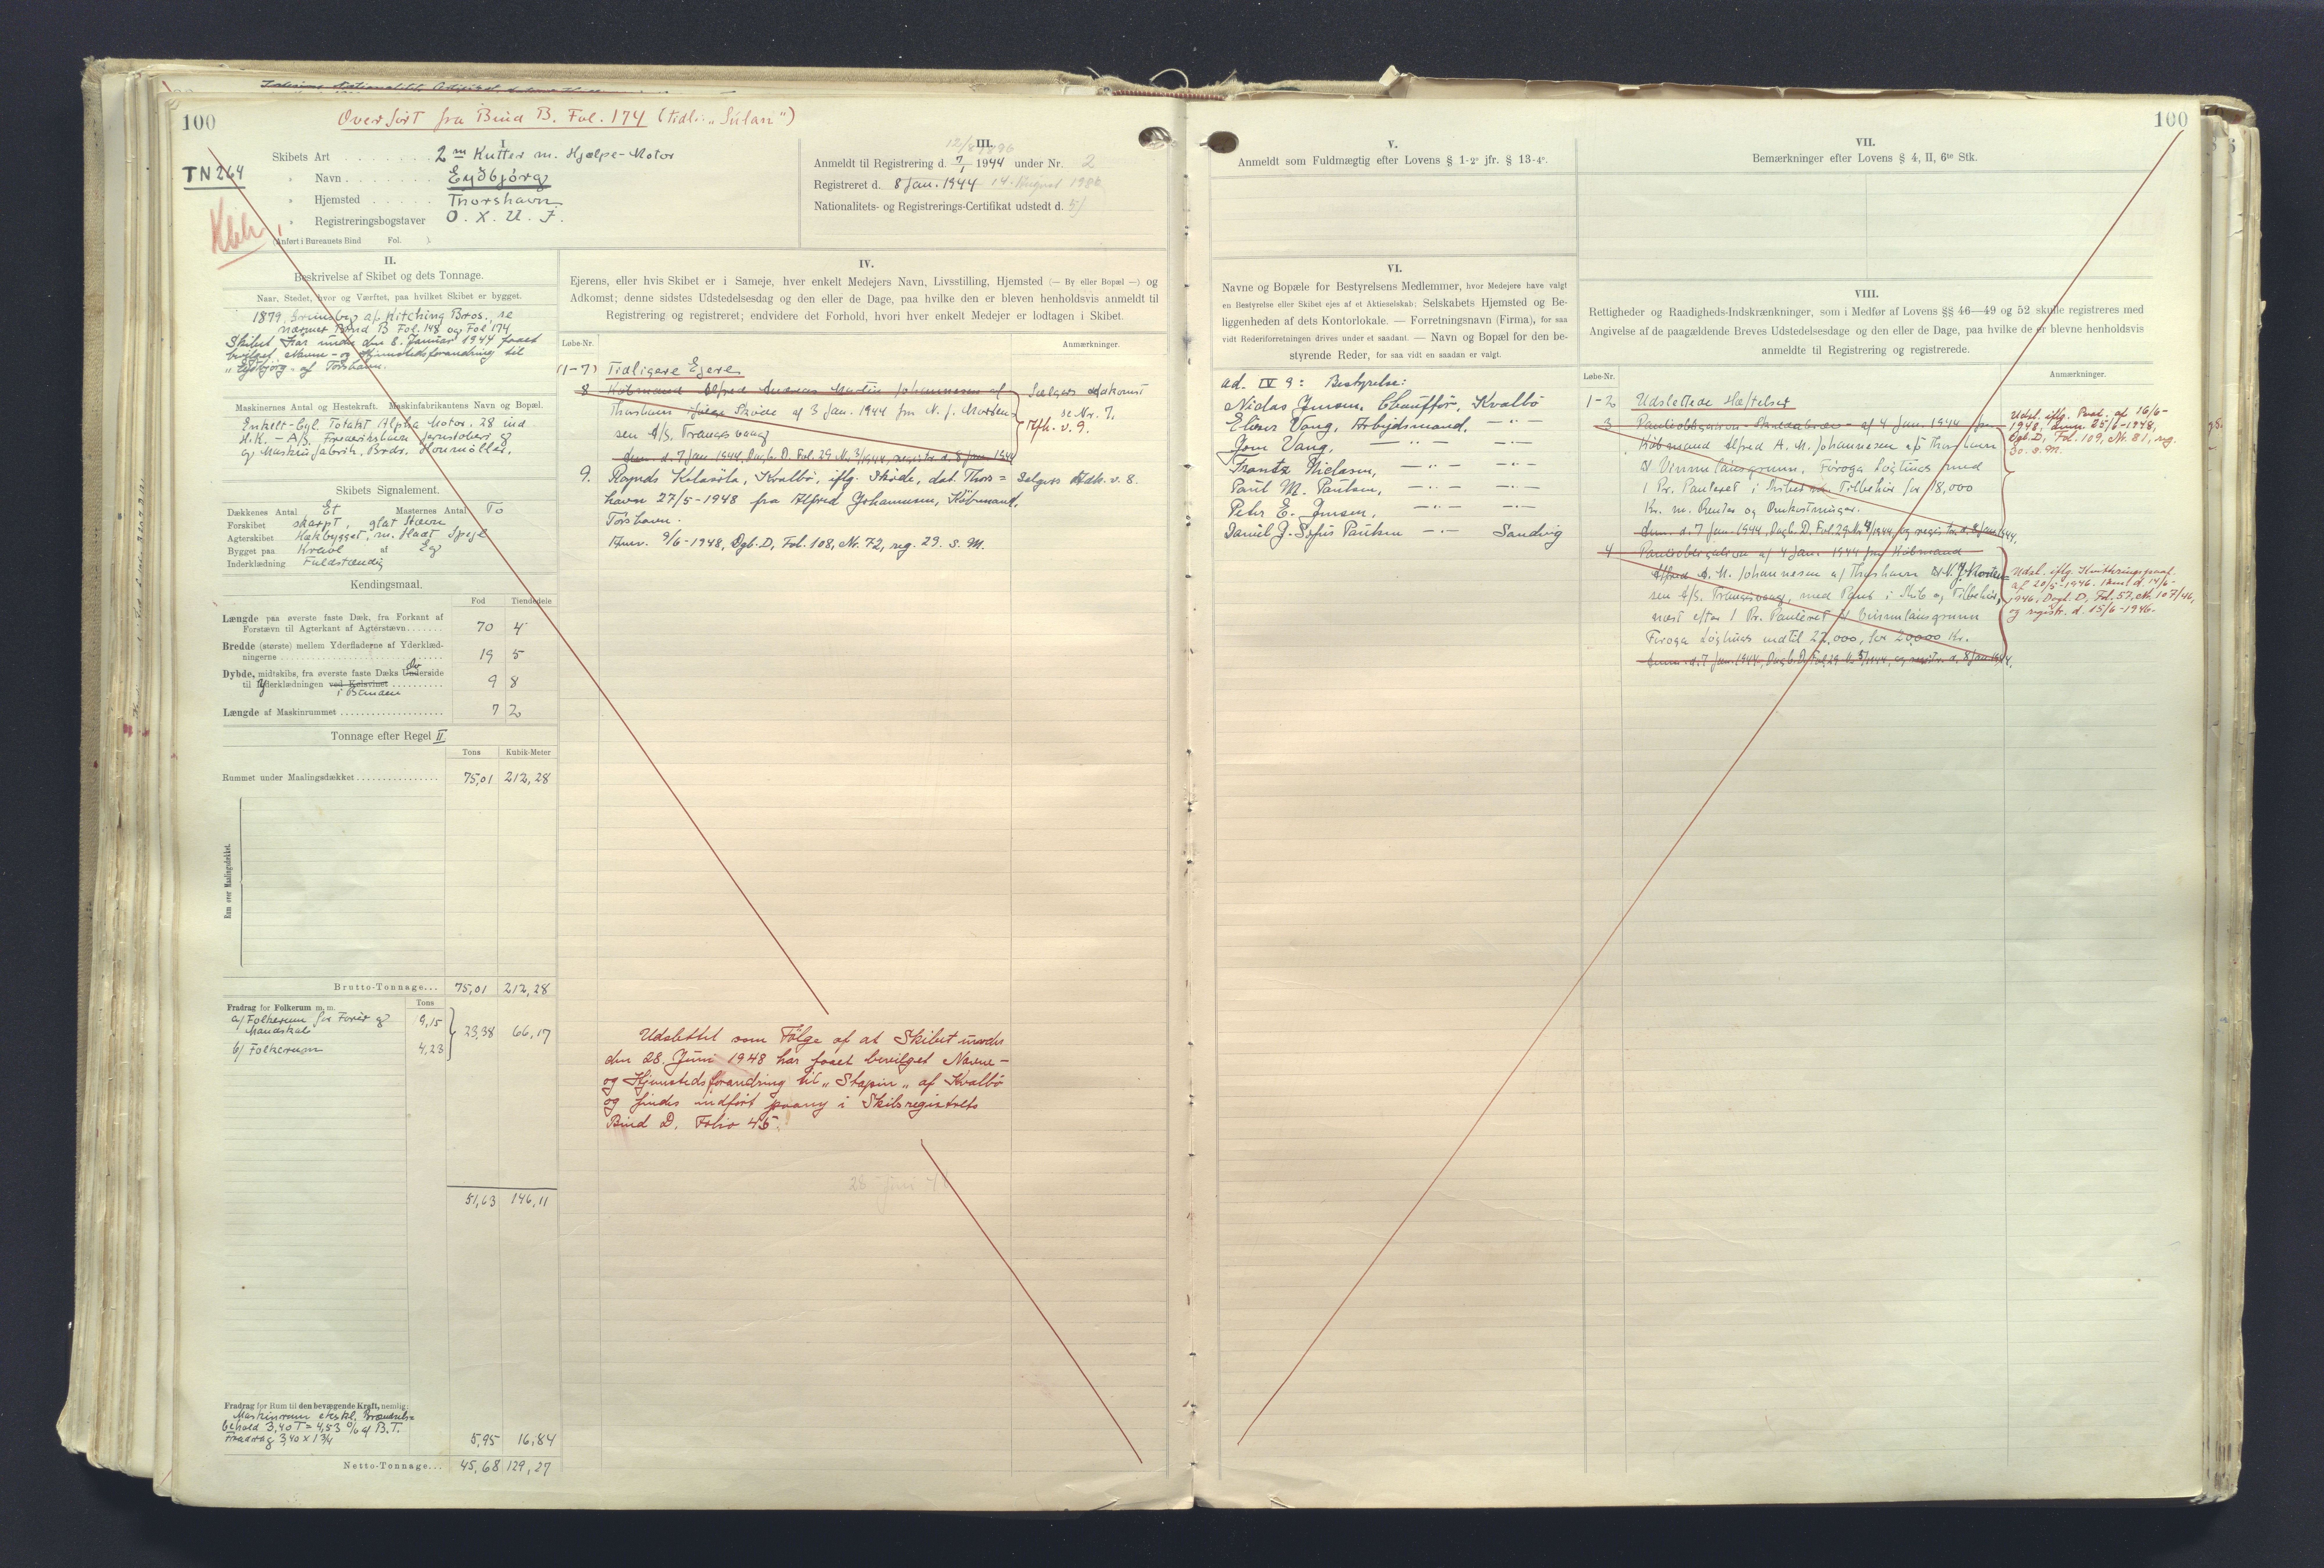 100
Overført fra Bind B. Fol. 174 (tidl: "Sulan")
TN 264
I.
Skibets Art 2 m Kutter m. Hjælpe-Motor
" Navn Eydbjörg
" Hjemsted Thorshavn
" Registreringsbogstaver O. X. U. F.
(Anført i Bureauets Bind Fol. )
III.
12/8 1896
Anmeldt til Registrering d. 7/1 1944 under Nr. 2
Registreret d. 8 Jan. 1944 14. August
Nationalitets- og Registrerings-Certifikat udstedt d.
II.
Beskrivelse af Skibet og dets Tonnage.
Naar, Stedet, hvor og Værftet, paa hvilket Skibet er bygget.
1879, Grimsby af Kitching Bros., se
nærmere Bind B Fol. 148 og Fol 174
Skibet har under den 8. Januar 1944 faaet
bevilget Navne- og Hjemstedsforandring til
"Eydbjörg" af Torshavn.
Maskinernes Antal og Hestekraft. Maskinfabrikantens Navn og Bopæl.
Enkelt-Cyl. Totakt Alpha Motor. 28 ind
H.K. - A/S. Frederikshavn Jernstöberi og
og Maskinfabrik, Brdr. Houmöller.
Skibets Signalement.
Dækkenes Antal Et Masternes Antal To
Forskibet skarpt, glat Stævn
Agterskibet Hækbygget, m. fladt Spejl
Bygget paa Kravel af Eg
Inderklædning Fuldstændig
Kendingsmaal.
Fod Tiendedele
Længde paa øverste faste Dæk, fra Forkant af
Forstævn til Agterkant af Agterstævn 70 4
Bredde (største) mellem Yderfladerne af Yderklæd-
ningerne 19 5
Dybde, midtskibs, fra øverste faste Dæks Underside
til Yderklædningen ved Kølsvinet 9 8
i Bunden
Længde af Maskinrummet 7 2
Tonnage efter Regel II
Tons Kubik-Meter
Rummet under Maalingsdækket 75,01 212,28
Rum over Maalingsdækket.
Brutto-Tonnage... 75,01 212,28
Fradrag for Folkerum m. m. Tons
a/ Folkerum for Förer og
Mandskab 19,15
b/ Folkerum 4,23
23,38 66,17
51,63 146,11
Fradrag for Rum til den bevægende Kraft, nemlig:
Maskinrum ekskl. Brændsels=
behold 3,40 T = 4,53 % af B.T.
Fradrag 3,40 x 1 3/4 5,95 16,84
Netto-Tonnage... 45,68 129,27
IV.
Ejerens, eller hvis Skibet er i Sameje, hver enkelt Medejers Navn, Livsstilling, Hjemsted (— By eller Bopæl —) og
Adkomst; denne sidstes Udstedelsesdag og den eller de Dage, paa hvilke den er bleven henholdsvis anmeldt til
Registrering og registreret; endvidere det Forhold, hvori hver enkelt Medejer er lodtagen i Skibet.
Løbe-Nr. Anmærkninger.
(1-7) Tidligere Ejere
8 Köbmand Alfred Andreas Martin Johannesen af
Thorshavn ifølge Skøde af 3 Jan. 1944 fra N. J. Morten-
sen A/S. Trangisvaag
Anm. d. 7 Jan 1944, Dagb. D. Fol. 29 Nr. 3/1944, registr. d. 8 Jan 1944
Sælgers Adkomst
se Nr. 7.
Afh. v. 9.
9. Ragnds Kolasöla, Kvalbö, iflg. Sköde, dat. Thors=
havn 27/5-1948 fra Alfred Johannesen, Köbmand,
Torshavn.
Anm. 9/6-1948, Dgb. D, Fol. 108, Nr. 72, reg. 29. s. M.
Selgers Adk. v. 8.
Udslettet som Fölge af at Skibet under
den 28. Juni 1948 har faaet bevilget Navne-
og Hjemstedsforandring til "Stapin" af Kvalbö
og findes indført paany i Skibsregistrets
Bind D. Folio 45.
28 Juni 48
100
V.
Anmeldt som Fuldmægtig efter Lovens § 1-2° jfr. § 13-4°.
VI.
Navne og Bopæle for Bestyrelsens Medlemmer, hvor Medejere have valgt
en Bestyrelse eller Skibet ejes af et Aktieselskab; Selskabets Hjemsted og Be-
liggenheden af dets Kontorlokale. — Forretningsnavn (Firma), for saa
vidt Rederiforretningen drives under et saadant. — Navn og Bopæl for den be-
styrende Reder, for saa vidt en saadan er valgt.
ad. IV 9: Bestyrelse:
Niclas Jensen, Chauffør, Kvalbö
Elieser Vang, Arbejdsmand, -"-
Jom Vang, -"- -"-
Frantz Niclasen, -"- -"-
Paul M. Paulsen, -"- -"-
Peter E. Jensen, -"- -"-
Daniel J. Sofus Paulsen -"- Sandvig
VII.
Bemærkninger efter Lovens § 4, II, 6te Stk.
VIII.
Rettigheder og Raadigheds-Indskrænkninger, som i Medfør af Lovens §§ 46—49 og 52 skulle registreres med
Angivelse af de paagældende Breves Udstedelsesdage og den eller de Dage, paa hvilke de er blevne henholdsvis
anmeldte til Registrering og registrerede.
Løbe-Nr. Anmærkninger.
1-2 Udslettede Hæftelser
3 Panteobligation - Skadesløsbrev - af 4 Jan. 1944 fra
Köbmand Alfred A. M. Johannesen af Thorshavn
til Vinnulánsgrunn. Föroga Løgtings med
1 Pr. Panteret i Skibet og Tilbehör for 18,000
Kr. m. Renter og Omkostninger.
Anm. d. 7 Jan. 1944, Dagb. D. Fol. 29 Nr. 4/1944, og registr. d. 8 Jan 1944.
Udsl. iflg. Paat. af 16/6-
1948, Anm. 25/6-1948,
Dgb. D, Fol. 109, Nr. 81, reg.
30. s. M.
4 Panteobligation af 4 Jan. 1944 fra Köbmand
Alfred A. M. Johannesen af Thorshavn til N. J. Morten=
sen A/S. Trangisvaag, med Pant i Skib og Tilbehör,
næst efter 1 Pr. Panteret til Vinnulánsgrunn
Föroga Løgtings indtil 22,000, for 20,000 Kr.
Anm. d. 7 Jan. 1944, Dagb. D. Fol. 29 Nr. 5/1944, og registr. d. 8 Jan 1944.
Udsl. iflg. Kvitteringspaat.
af 20/5-1946. Anm. d. 14/6-
1946, Dagb. D, Fol. 57, Nr. 107/46,
og registr. d. 15/6-1946.